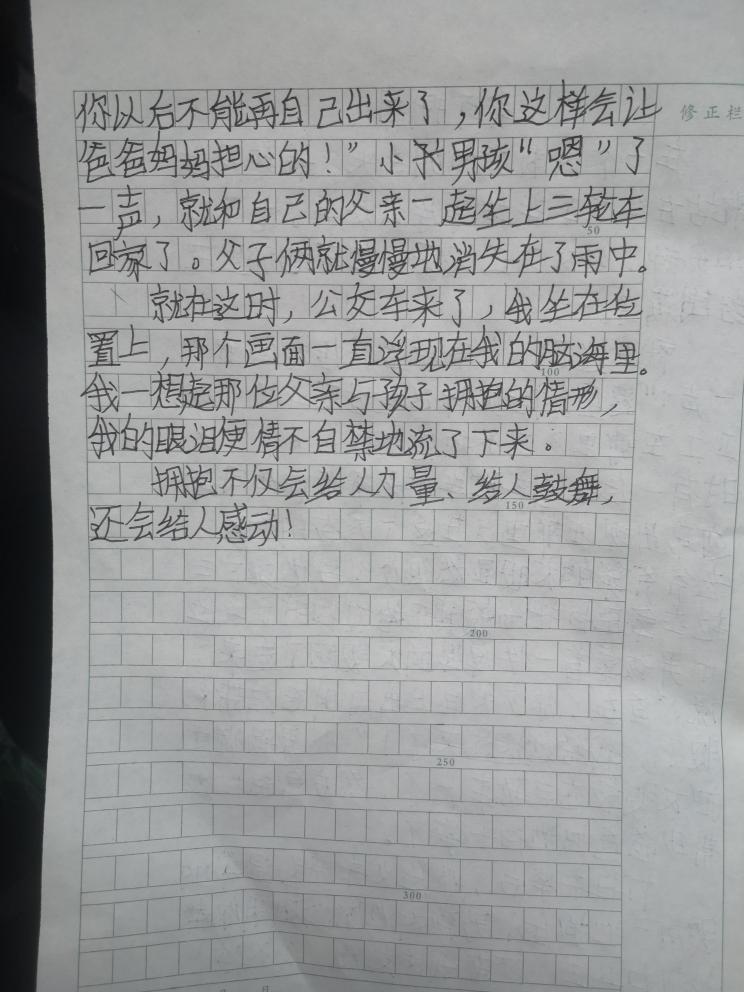 你以后不能再自己出来了，你这样会让
修正栏
爸爸妈妈担心的！”小男孩“嗯”了
一声，就和自己的父亲一起坐上三轮车
50
回家了。父子俩就慢慢地消失在了雨中。
就在这时，公交车来了，我坐在位
置上，那个画面一直浮现在我的脑海里。
100
我一想起那位父亲与孩子拥抱的情形，
我的眼泪便情不自禁地流了下来。
拥抱不仅会给人力量、给人鼓舞，
150
还会给人感动！
200
250
300